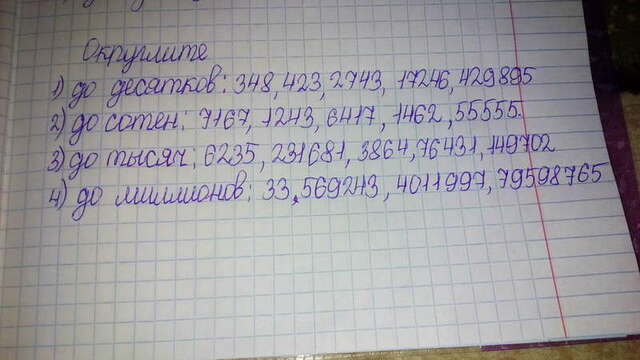 Округлите
1) до десятков: 348, 423, 2743, 17246, 429895
2) до сотен: 7167, 1243, 6417, 1462, 55555.
3) до тысяч: 6235, 231681, 3864, 76431, 149702
4) до миллионов: 33,569243, 4011997, 79598765